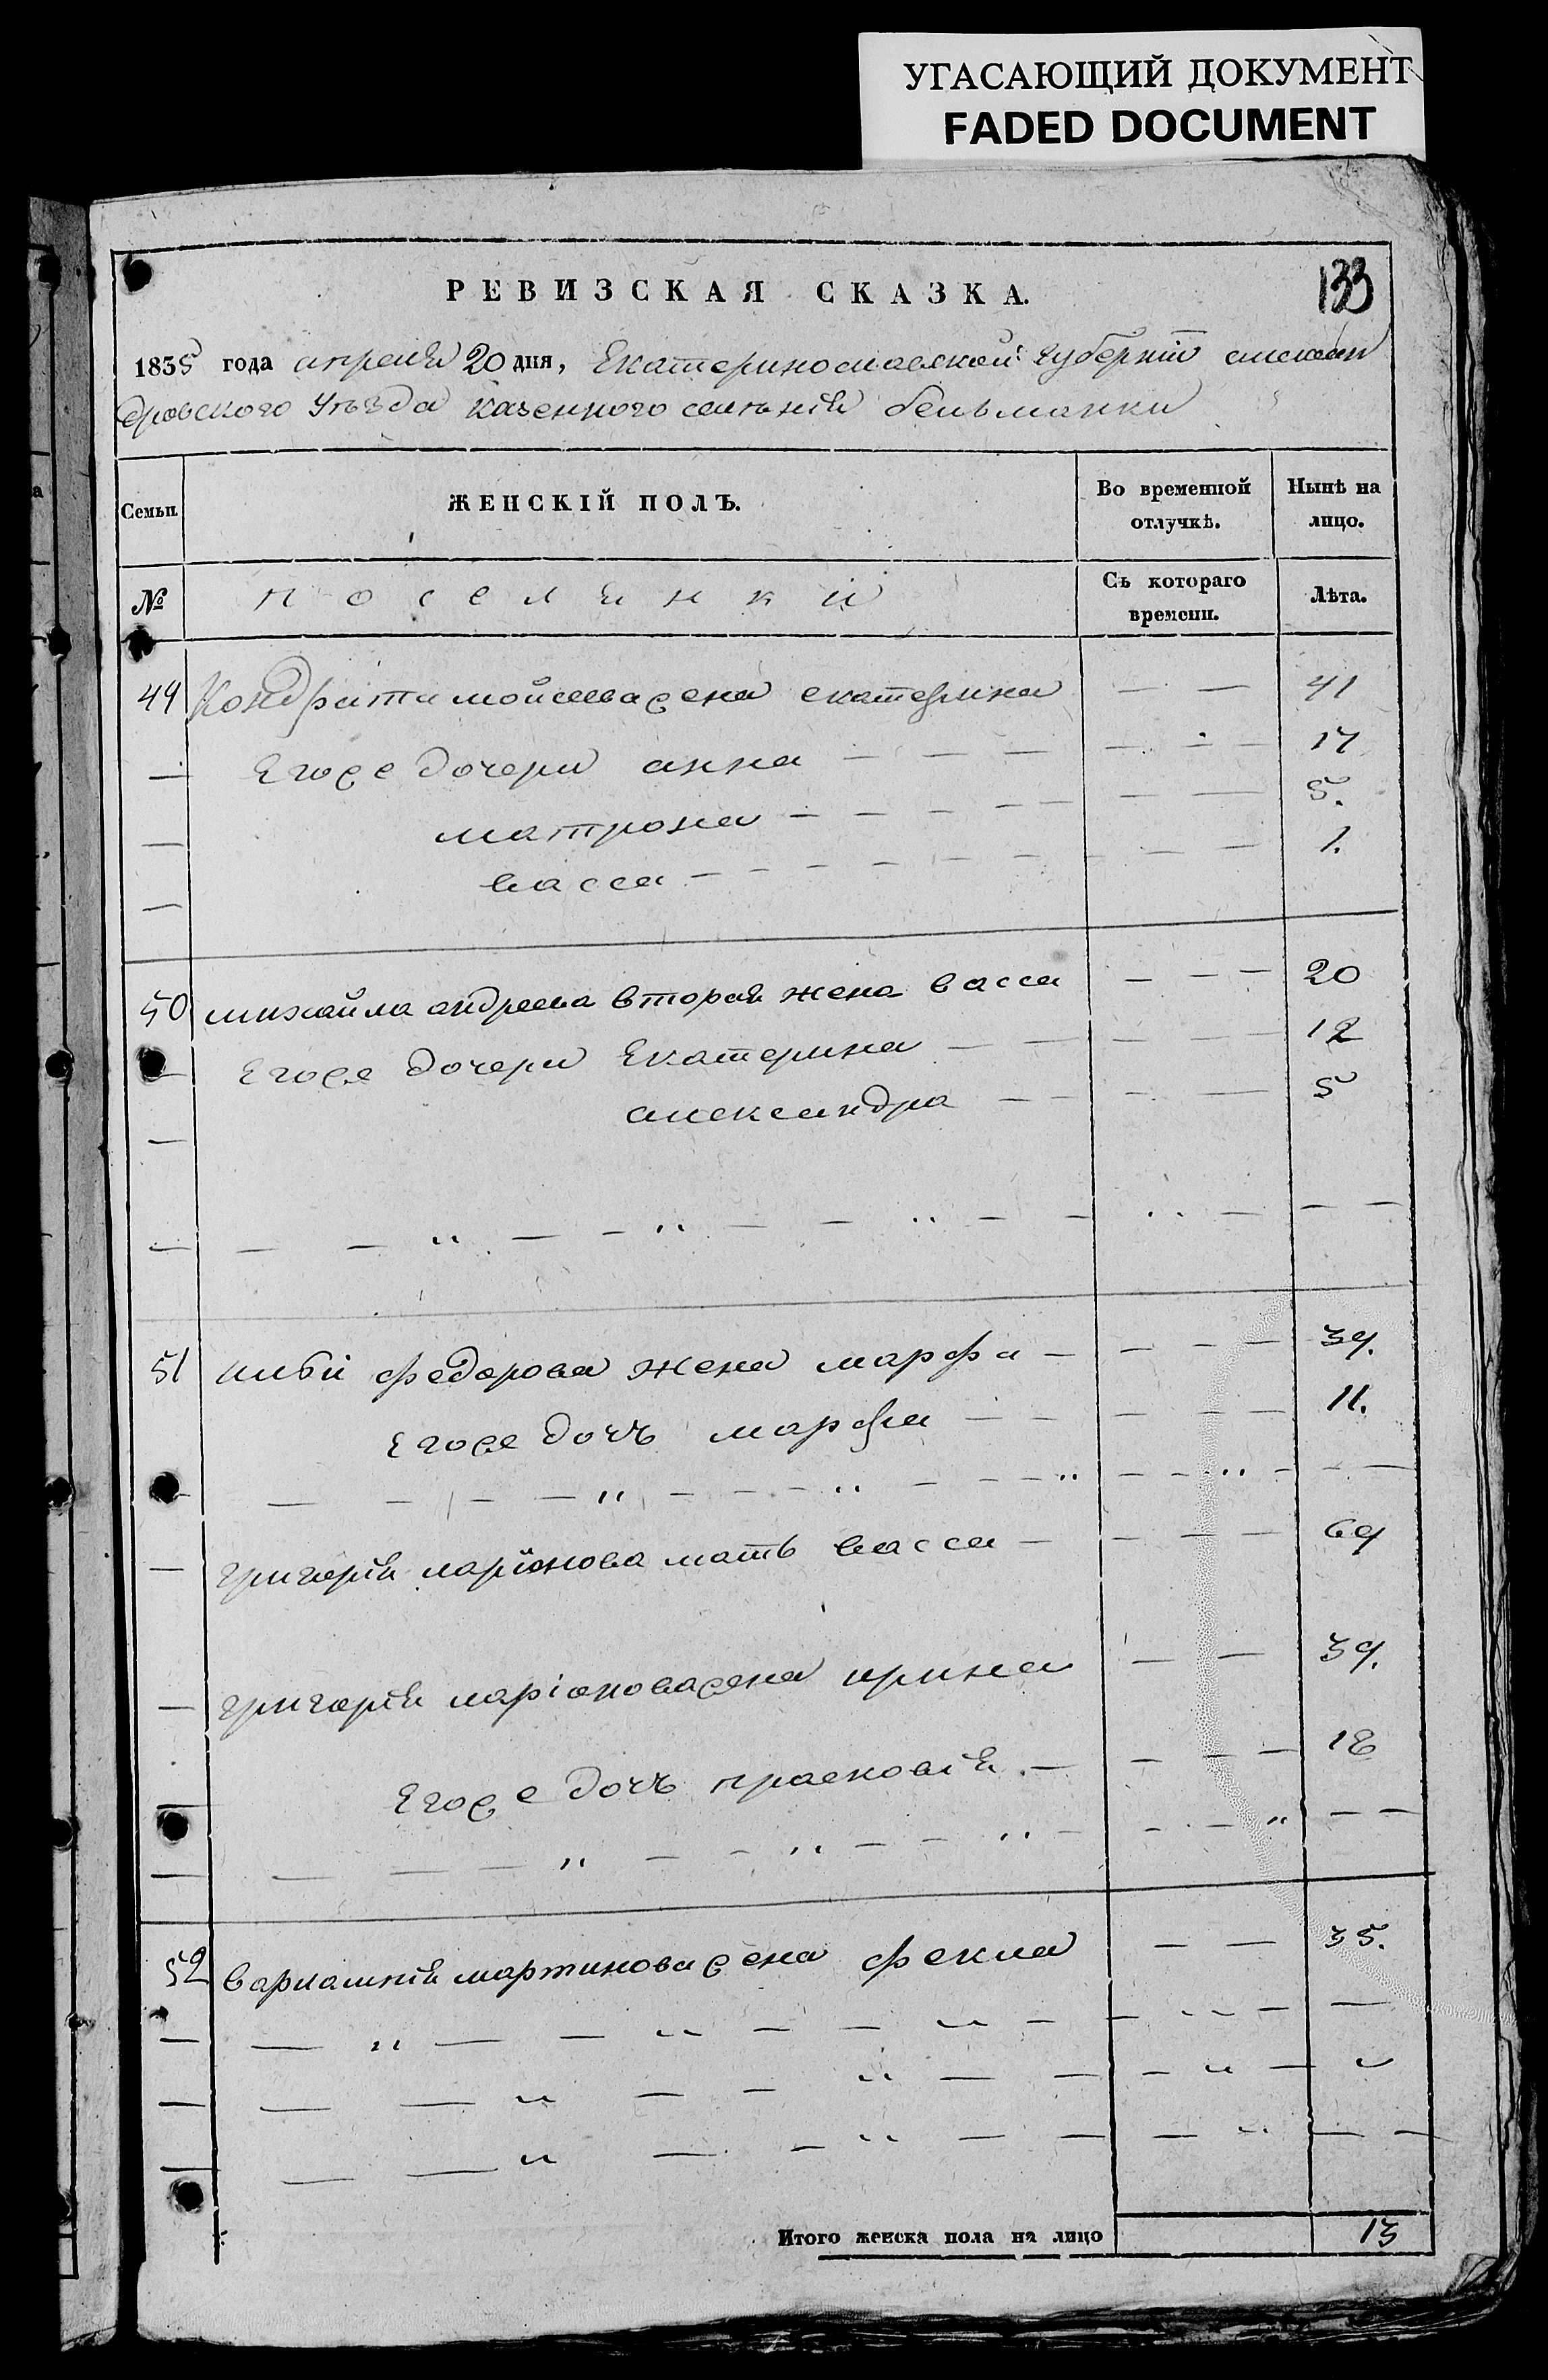 УГАСАЮЩИЙ ДОКУМЕНТ
FADED DOCUMENT
РЕВИЗСКАЯ СКАЗКА.
133
1835 года апреля 20 дня, Екатеринославской губернiи алексан
дровского уѣзда казенного селѣнiя бельманки
Семьи.
ЖЕНСКIЙ ПОЛЪ.
Во временной отлучкѣ.
Нынѣ на лицо.
№
поселянки
Съ котораго времени.
Лѣта.
49 Кондратя мойсеева жена екатерина — — 41
— Егоже дочери анна — — — — — 17
— матрона — — — — — — — 5.
— васса — — — — — — — — — 1.
50 михайла андреева вторая жена васса — — — 20
— Егоже дочери Екатерина — — — — — 12
— александра — — — — — 5
— — — " — — " — — " — — " — — —
51 федорова жена марфа — — — — 39.
Егоже дочъ марфа — — — — — 11.
— — — — " — — — " — — — " — — " — — —
— григорiя ларiонова мать васса — — — — 69
— григорiя ларiонова жена ирина — — 39.
— Егоже дочъ прасковiя — — — — 18
— — — — " — — " — — — " — —
52 варламiя мартинова жена фекла — — 35.
— — " — — " — — " — — " — —
— — — " — — " — — — " — "
— — — " — — " — — — " — —
Итого женска пола на лицо 13